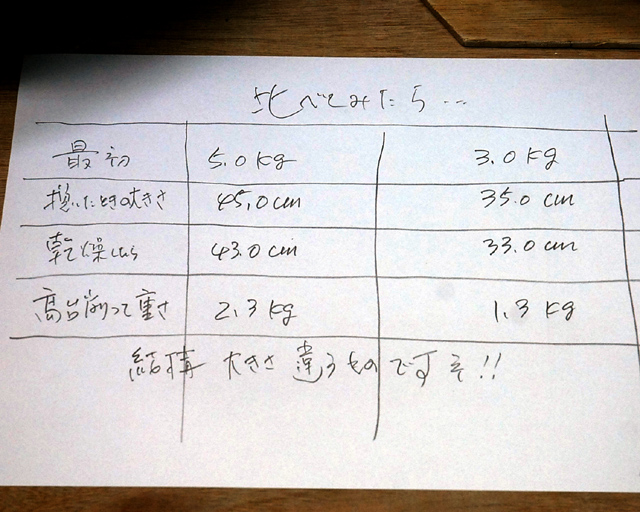 比べてみたら…
最初 5.0kg 3.0kg
挽いたときの大きさ 45.0cm 35.0cm
乾燥したら 43.0cm 33.0cm
高台削って重さ 2.3kg 1.3kg
結構 大きさ 違うものですネ!!